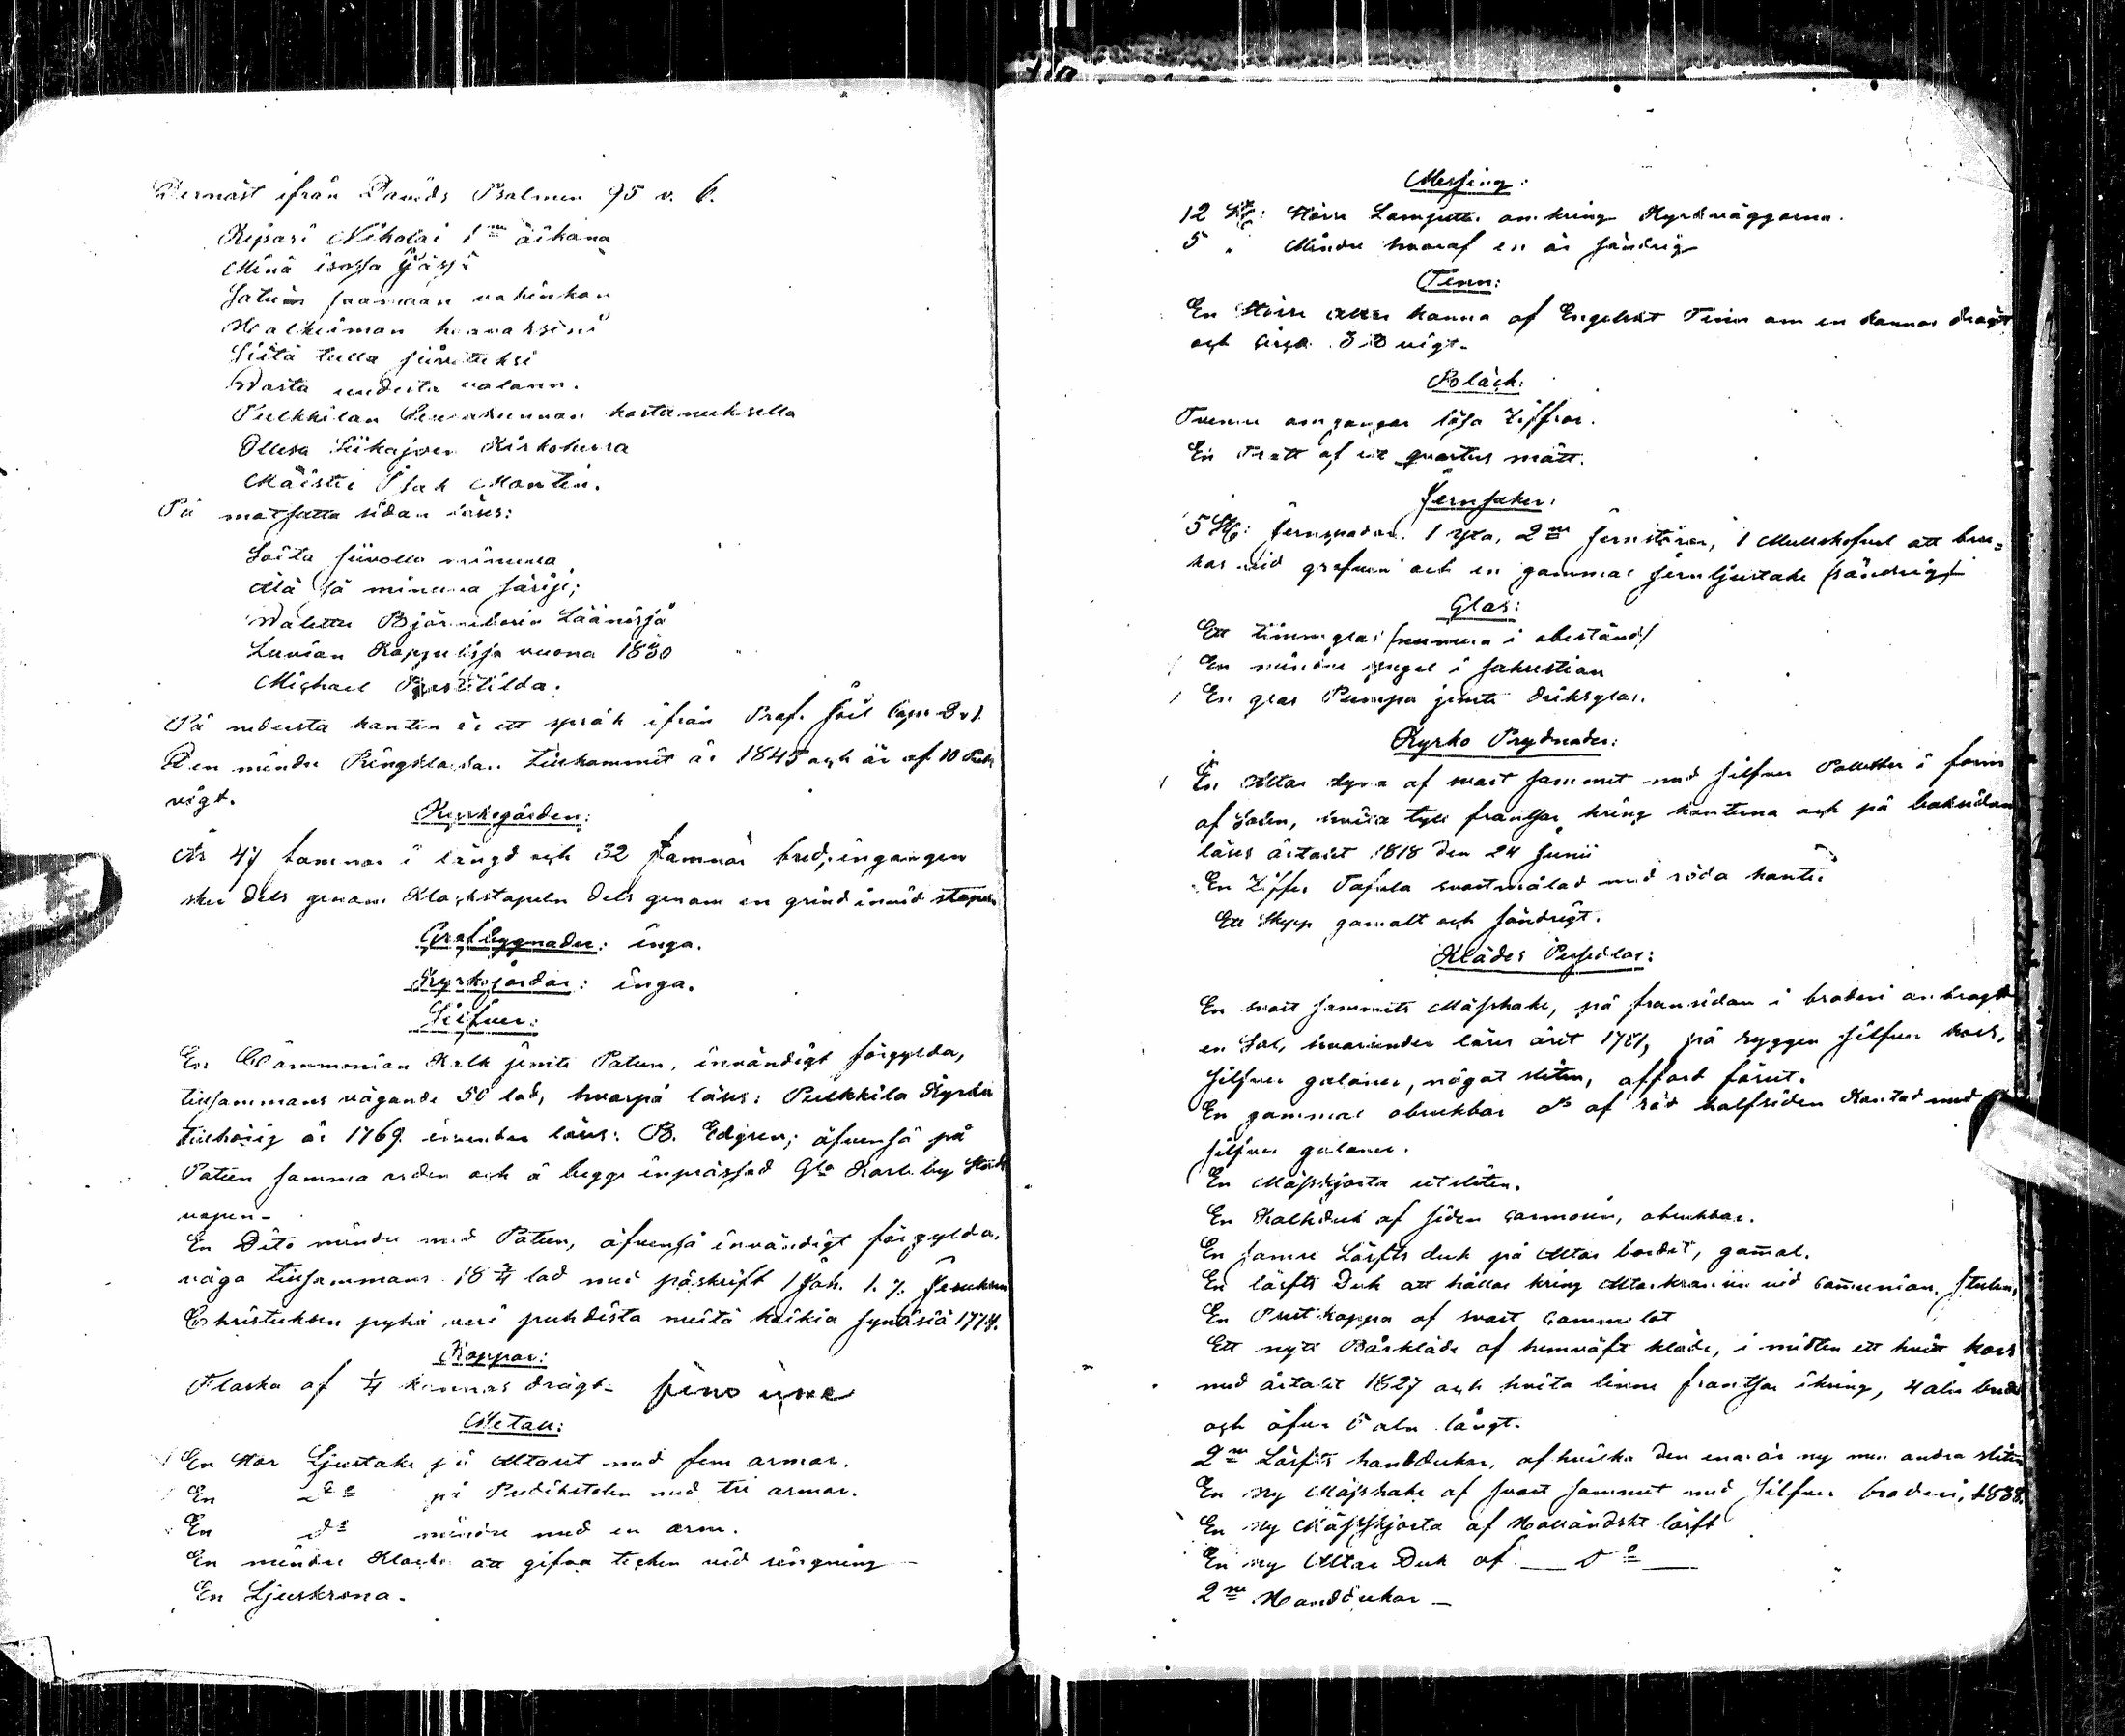 Dernäst ifrån Davids Psalmen 95 v. 6.
Keisari Nikolai 1n aikana
Minä isossa
Satuin saamaan vahingon
Halkeiman
Siitä tulla
Wasta uudesta valann.
Pulkkilan Seurakunnan kostanuksella
Ollesa Siikajoen Kirkoherra
Maisteri Isak Montin.
På motsatta sidan läses:
Soita minussa
Älä lä minussa särije;
Walettu Björneborin Läänissä
Luvian Kappelissa vuona 1830
Michael
På nedersta kanten är ett språk ifrån Prof. Joel Cap. 2 v 1.
Den mindre Ringklockan tillkommit år 1845 och är af 10
vigt.
Kyrkogården:
Är 47 famnar i längd och 32 famnar bred, ingången
sker dels genom Klockstapeln dels genom en grind invid stapeln
Grafbyggnader: inga.
Kyrkojordar: inga.
Silfver:
En Communion Kalk jemte Paten, invändigt förgylda,
tillsammans vägande 50 lod, hvarpå läses: Pulkkila Kyrka
tillhörig år 1769 läses: B. Edgren; äfvenså på
Paten samma orden och å begge inprässad Gla Karleby Stads
vapen-
En Dito mindre med Paten, äfvenså invändigt förgylda,
väga tillsammans 18 3/4 lod med påskrift 1 Joh. 1. 7. Jesuksen
Christuksen pyhä veri puhdista meitä kaikia synäsiä 1774.
Koppar:
Flaska af 1/4 kannas drägt-
Metall:
En stor Ljustake på Altaret med fem armar.
En do på Predikstolen med tre armar.
En do mindre med en arm.
En mindre Klocka att gifva tecken vid ringning -
En Ljuskrona.
Messing:
12 St: större Lampetter omkring Kyrkväggarna.
5 " Mindre hvaraf en är sändrig
Tenn:
En större kanna af Engelskt Tenn om en kannas drägt
och circa vigt-
Bläck:
Tvenne omgångar lösa Ziffror.
En Tratt af ett quarters mått.
Jernsaker:
5 St: Jernspadar. 1 yxa, 2ne Jernstörar, 1 Mullskofvel att bru=
kas vid grafven och en gammal jernljustake /sändrig/
Glas:
Ett timmglas /numera i obestånd/
En mindre spegel i Sakristian
En glas Pumpa jemte dricksglas.
Kyrko Prydnader:
En Altar af svart sammet med silfver Palletter i form
af Solen, hvita frantsar kring kanterna och på baksidan
läses årtalet 1818 den 24 Junii
En Ziffer Tafvla svartmålad med röda kanter
Ett Skepp gamalt och sändrigt.
Klädes Persedlar:
En svart sammets Mässhake, på framsidan i broderi anbragt
en Sol, hvarunder läses året 1781, på ryggen silfver kors,
silfver galoner, något sliten,
En gammal obrukbar do af röd halfsiden kantad med
silfver galoner.
En Mässkjorta utsliten.
En Kalkduk af siden carmosin, obrukbar.
En Lärfts duk på Altar bordet, gammal.
En lärfts Duk att hållas kring Altarkransen vid communion,
En Prest kappa af svart cammelot
Ett nytt Bårkläde af hemväft kläde, i midten ett hvitt kors
med årtalet 1827 och hvita linne frantsar ikring, 4 aln bredt
och öfver 5 aln långt.
2ne Lärfts handdukar, af hvilka den ena är ny men andra sliten
En ny Mässhake af svart sammet med silfver broderi, 1838.
En ny Mässkjorta af Holländskt lärft
En ny Altar Duk af — do —
2ne Handdukar -